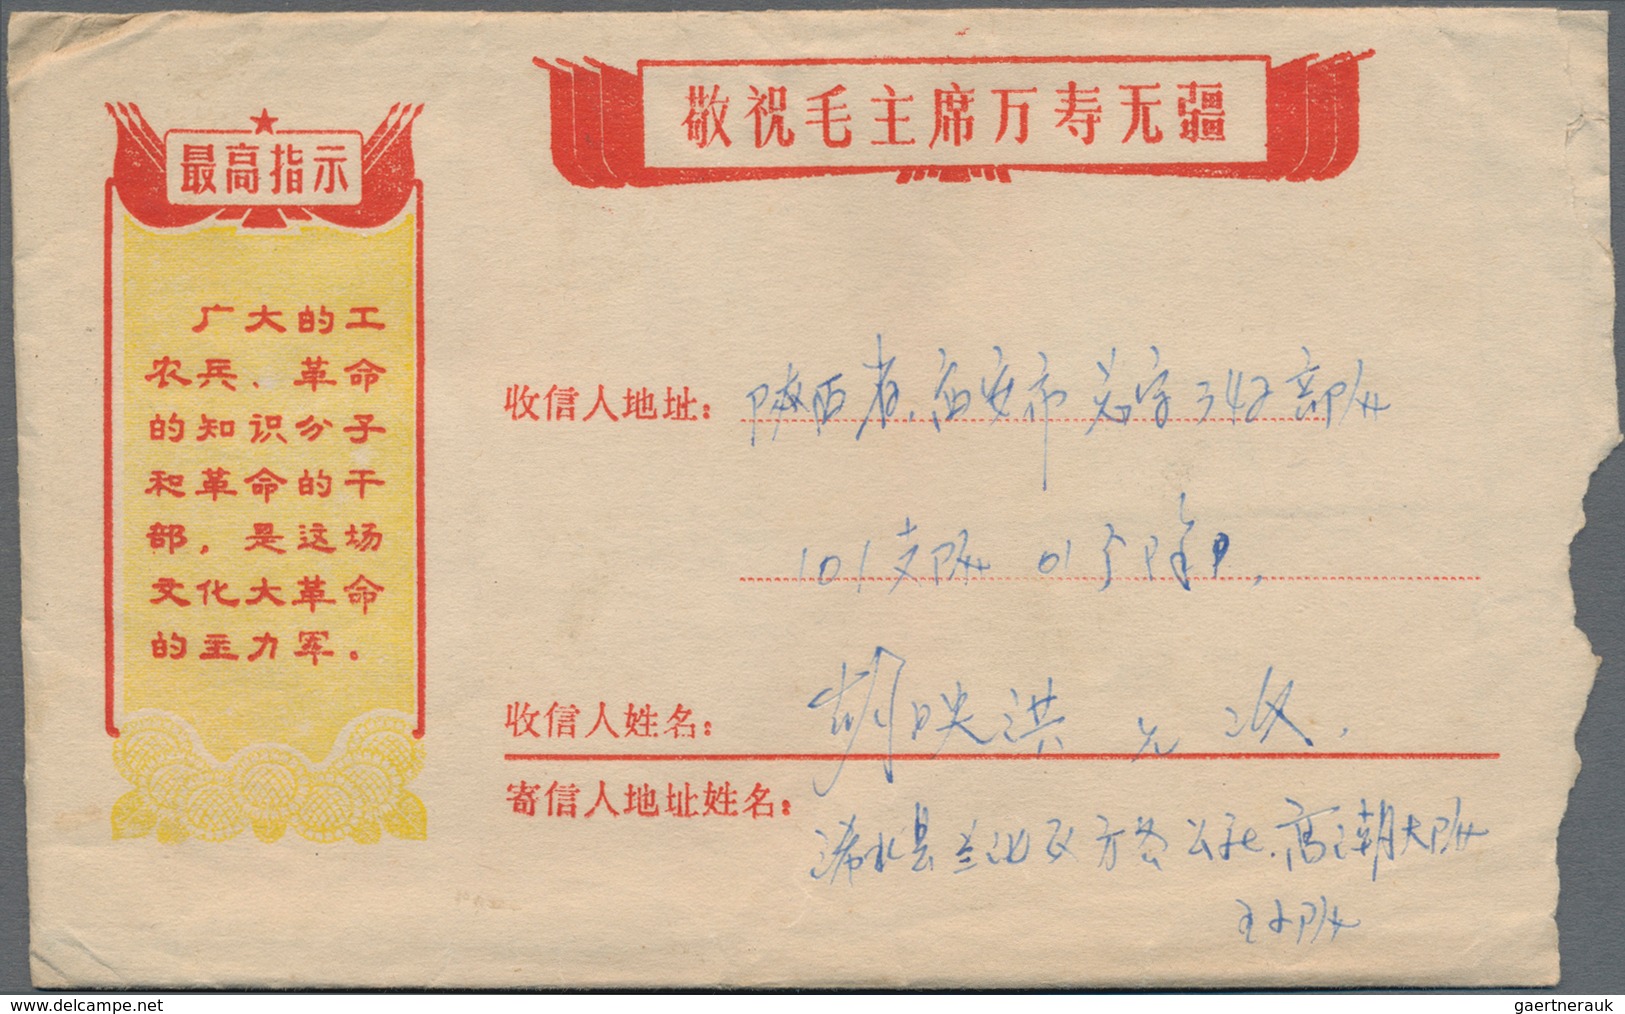 敬祝毛主席万寿无疆
最高指示
广大的工
农兵、革命
的知识分子
和革命的干
部，是这场
文化大革命
的主力军。
收信人地址：陕西省、西安市 字 342部队
101支队 01
收信人姓名：胡映洪 兄 收.
寄信人地址姓名：
浠水县兰 区方 公社.高潮大队
小队
www.delcampe.net
gaertnerauk